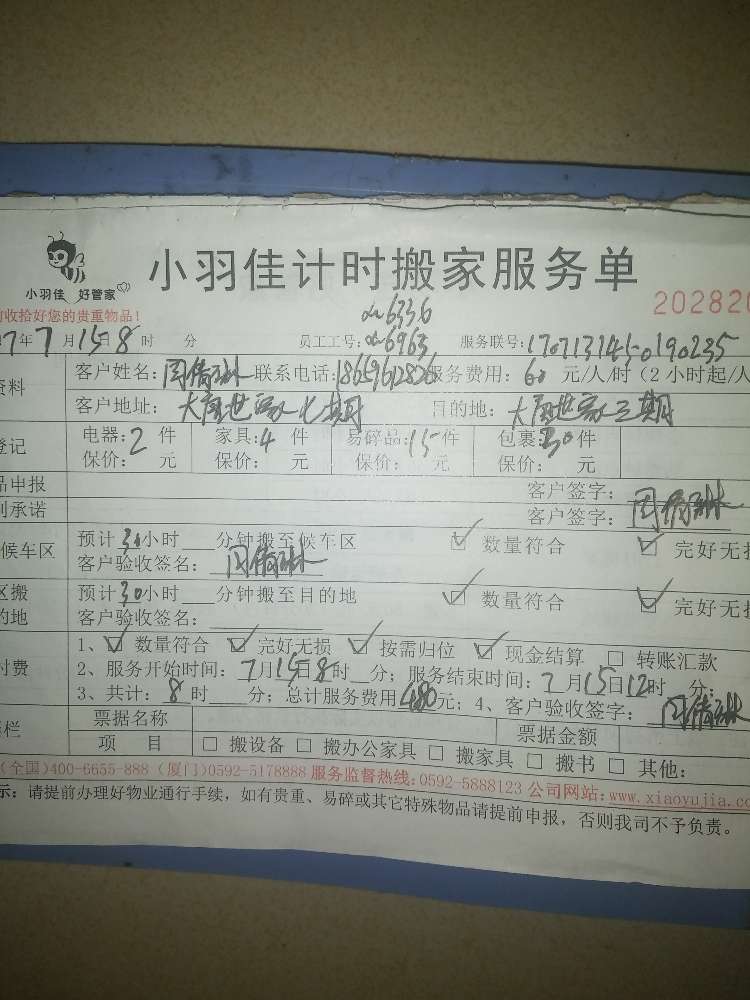 小羽佳 好管家
小羽佳计时搬家服务单
202820
收拾好您的贵重物品!
6336
7年7月15日8时 分 员工工号:6963 服务联号:1707131450190235
资料 客户姓名:周倩琳 联系电话:18659612826 服务费用:60元/人/时(2小时起/人
客户地址: 七期 目的地: 三期
登记 电器:2件 家具:4件 易碎品:15件 包裹:30件
保价: 元 保价: 元 保价: 元 保价: 元
品申报 客户签字:周倩琳
承诺 客户签字:
候车区 预计30小时 分钟搬至候车区 ☑ 数量符合 ☑ 完好无损
客户验收签名:周倩琳
区搬 预计30小时 分钟搬至目的地 ☑ 数量符合 ☑ 完好无损
的地 客户验收签名:
1、☑ 数量符合 ☑ 完好无损 ☑ 按需归位 ☑ 现金结算 □ 转账汇款
付费 2、服务开始时间:7月15日8时 分;服务结束时间:7月15日12时 分;
3、共计:8时 分;总计服务费用480元;4、客户验收签字:周倩琳
栏 票据名称 票据金额
项 目 □ 搬设备 □ 搬办公家具 □ 搬家具 □ 搬书 □ 其他:
(全国)400-6655-888 (厦门)0592-5178888 服务监督热线:0592-5888123 公司网站:www.xiaoyujia.co
示:请提前办理好物业通行手续,如有贵重、易碎或其它特殊物品请提前申报,否则我司不予负责。